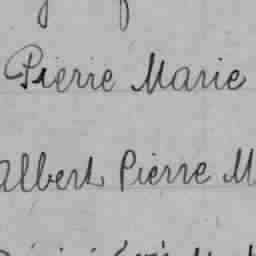 Pierre Marie
Albert Pierre M